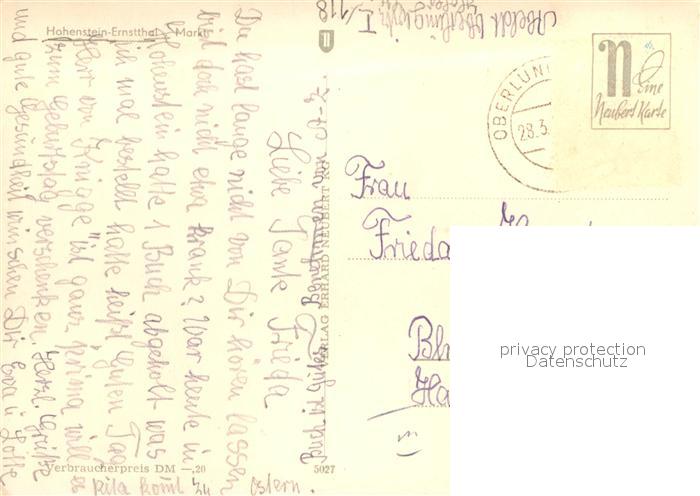 Hohenstein-Ernstthal Markt
Liebe Tante Frieda
Du hast lange nicht von Dir hören lassen
bist doch nicht etwa krank? War heute in
Hohenstein hatte 1 Buch abgeholt was
ich mal bestellt hatte heißt "Guten Tag
Herr von Knigge" ist ganz prima will es
zum Geburtstag verschenken. Herzl. Grüße
und gute Gesundheit wünschen Dir Eva u. Lotte
Rita kommt zu Ostern.
Buch ist gutes Benehmen von
VERLAG ERHARD NEUBERT KG
Verbraucherpreis DM —,20
5027
I/118
OBERLUN
28.3.
n
Eine
Neubert Karte
Frau
Frieda
Bl
Ha
privacy protection
Datenschutz